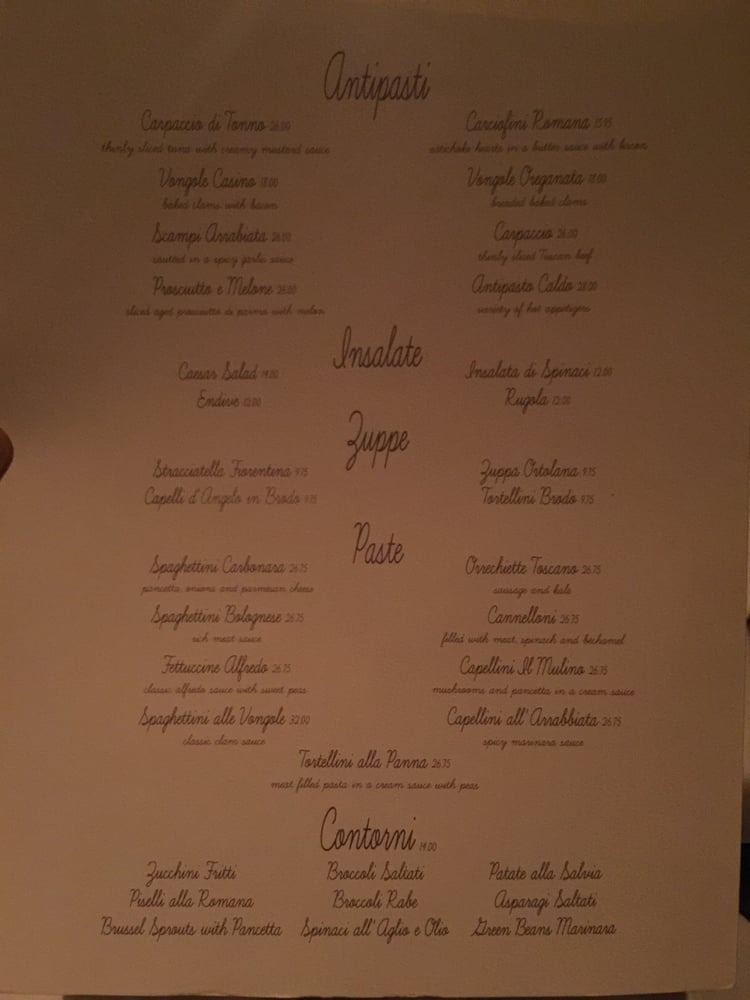 Antipasti
Carpaccio di Tonno 26.00
thinly sliced tuna with creamy mustard sauce
Carciofini Romana 15.95
artichoke hearts in a butter sauce with bacon
Vongole Casino 18.00
baked clams with bacon
Vongole Oreganata 18.00
breaded baked clams
Scampi Arrabiata 26.00
sautéed in a spicy garlic sauce
Carpaccio 26.00
thinly sliced Tuscan beef
Prosciutto e Melone 26.00
sliced aged prosciutto di parma with melon
Antipasto Caldo 28.00
variety of hot appetizers
Insalate
Caesar Salad 14.00
Insalata di Spinaci 12.00
Endive 12.00
Rugola 12.00
Zuppe
Stracciatella Fiorentina 9.75
Zuppa Ortolana 9.75
Capelli d'Angelo in Brodo 9.75
Tortellini Brodo 9.75
Paste
Spaghettini Carbonara 26.75
pancetta, onions and parmesan cheese
Orrechiette Toscano 26.75
sausage and kale
Spaghettini Bolognese 26.75
rich meat sauce
Cannelloni 26.75
filled with meat, spinach and bechamel
Fettuccine Alfredo 26.75
classic alfredo sauce with sweet peas
Capellini Il Mulino 26.75
mushrooms and pancetta in a cream sauce
Spaghettini alle Vongole 32.00
classic clam sauce
Capellini all' Arrabbiata 26.75
spicy marinara sauce
Tortellini alla Panna 26.75
meat filled pasta in a cream sauce with peas
Contorni 14.00
Zucchini Fritti
Broccoli Saltati
Patate alla Salvia
Piselli alla Romana
Broccoli Rabe
Asparagi Saltati
Brussel Sprouts with Pancetta
Spinaci all' Aglio e Olio
Green Beans Marinara